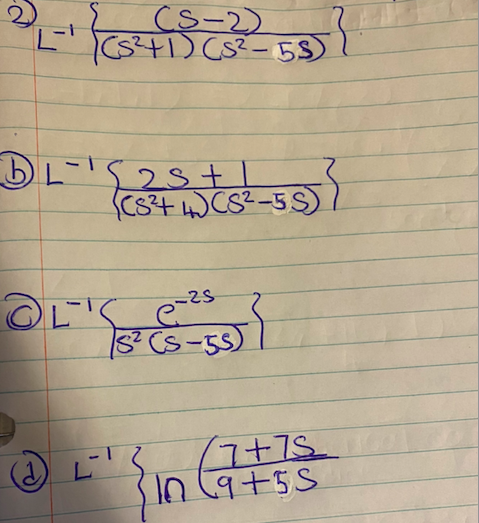 2) L⁻¹ { (S-2) / (S²+1) (S²- 5S) }
b) L⁻¹ { 2S + 1 / (S²+ 4)(S²-5S) }
c) L⁻¹ { e⁻²ˢ / S² (S-5S) }
(d) L⁻¹ { ln ( 7+7S / 9+5S